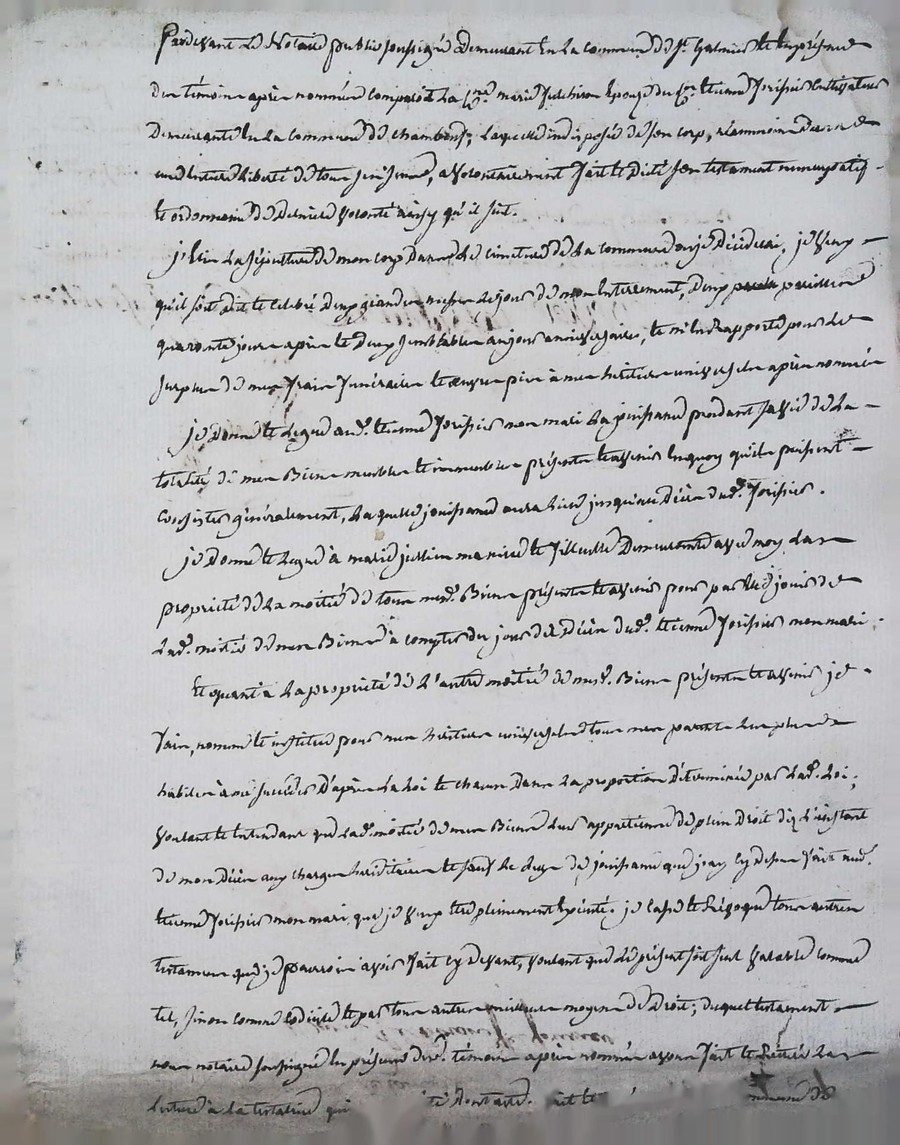 Pardevant Le Notaire public soussigné Demeurant En La commune de St. Galmier Et En présence
Des témoins après nommés comparoit La cne. marie Epouze du cen. Etienne Forissier Cultivateur
Demeurante En La commune de chambœuf, Laquelle indisposée de son corp, néanmoins Dans
une Entiere Liberté de tous ses sens, a volontairement fait Et Dicté son testament noncupatif
Et ordonnance de Derniere volonté ainsy qu'il suit.
j'Elis La sépulture de mon corp Dans Le cimetiere de La commune ou je Décèderai, je veux
qu'il soit dit Et célébré Deux grandes messes Le jour de mon Enterrement, Deux pareilles
quarante jours après Et Deux semblables au jour anniversaire, Et m'En rapporte pour Le
surplus de mes frais funéraires Et œuvres pies à mes héritiers universels après nommés
je Donne Et Legue aud. Etienne Forissier mon mari La jouissance pendant sa vie de La
totalité de mes Biens meubles Et immeubles présents Et avenir En quoy qu'ils puissent
Consister généralement, Laquelle jouissance aura Lieu jusqu'au Décès dud. Forissier.
je Donne Et Legue à marie jullien ma niece Et filleulle Demeurante avec moy La
propriété de La moitié de tous mesd. Biens présents Et avenir pour par Elle jouir de
Lad. moitié de mes Biens à compter du jour du Décès dud. Etienne Forissier mon mari.
Et quant à La propriété de L'autre moitié de mesd. Biens présents Et avenir je
fais, nomme Et institue pour mes héritiers universels tous mes parents Les plus
habiles à me succéder D'après La Loi Et chacun Dans La proportion Déterminée par Lad. Loi,
voulant Et Entendant que Lad. moitié de mes Biens Leur appartienne de plein Droit dez L'instant
de mon Décès aux charges héréditaires Et sauf Le Legs de jouissance que j'ay cy dessus fait aud.
Etienne Forissier mon mari, que je veux Etre pleinement Exécuté. je casse Et Révoque tous autres
testamens que je pourrois avoir fait cy Devant, voulant que Le présent soit seul valable comme
tel, sinon comme codicile Et par tous autres meilleurs moyens de Droit; duquel testament
nous notaire soussigné En présence desd. témoins après nommés avons fait Et Réitéré La
Lecture à La testatrice qui